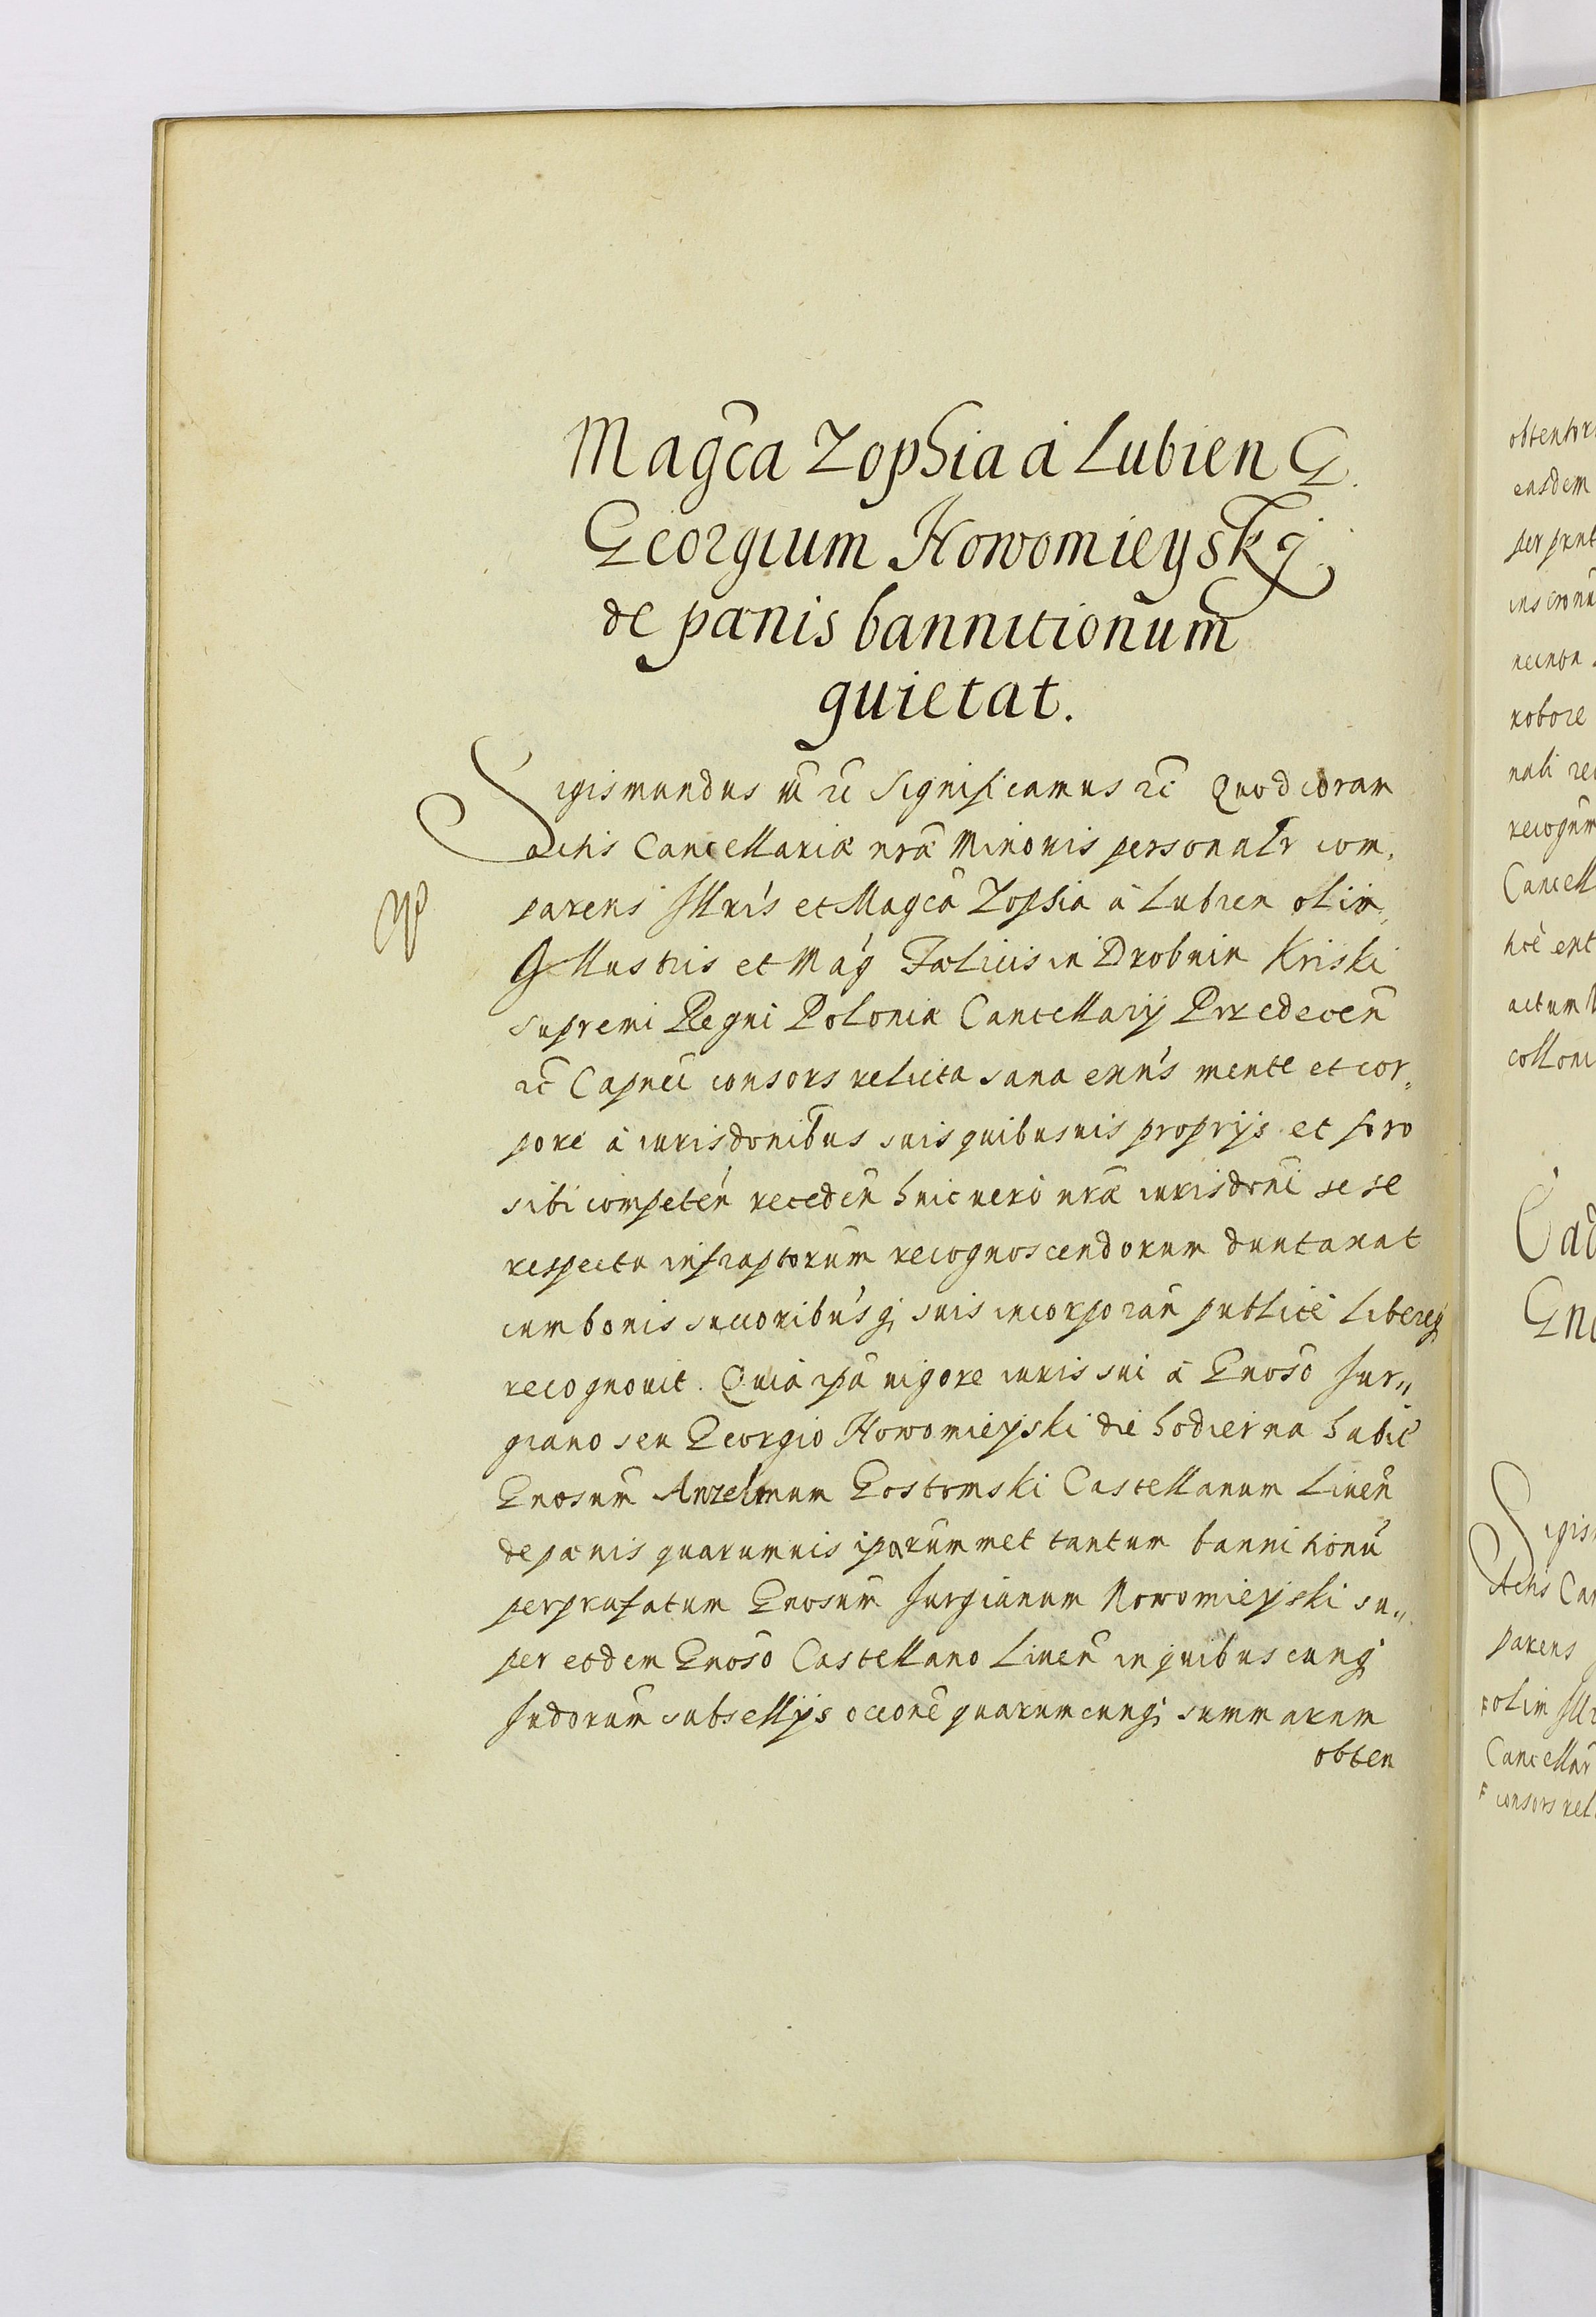 Magca Zophia à Lubien G.
Georgium Nowomieyskj
de pœnis bannitionum
quietat.
Sigismundus Significamus Quod coram
actis Cancellariæ nræ Minoris personalr com,
parens Illris et Magca Zophia à Lubien olim
Illustris et Mag Fœlicis in Drobnin Kriski
supremi Regni Poloniæ Cancellarij
consors relicta sana exns mente et cor„
pore à iurisdonibus suis quibusuis proprijs et foro
sibi competen receden huic uero nræ iurisdoni se se
respectu infraptorum recognoscendorum duntaxat
cum bonis succoribusq suis incorporan publice libereq
recognouit. Quia ipa uigore iuris sui à Gnoso Jur„
giano seu Georgio Nowomieyski die hodierna habit
Gnosum Anzelmum Gostomski Castellanum Liuen
de pœnis quarumuis iparummet tantum bannitionu
per præfatum Gnosum Jurgianum Nowomieyski su„
per eodem Gnoso Castellano Liuen in quibuscunq
Judorum subsellijs occone quarumcunq summarum
obten
obtentor
easdem
per prnt
robore
nali
Cancell
actum
Cad
Sigis
Actis Can
parens
olim Ill
Cancellar
consors rel